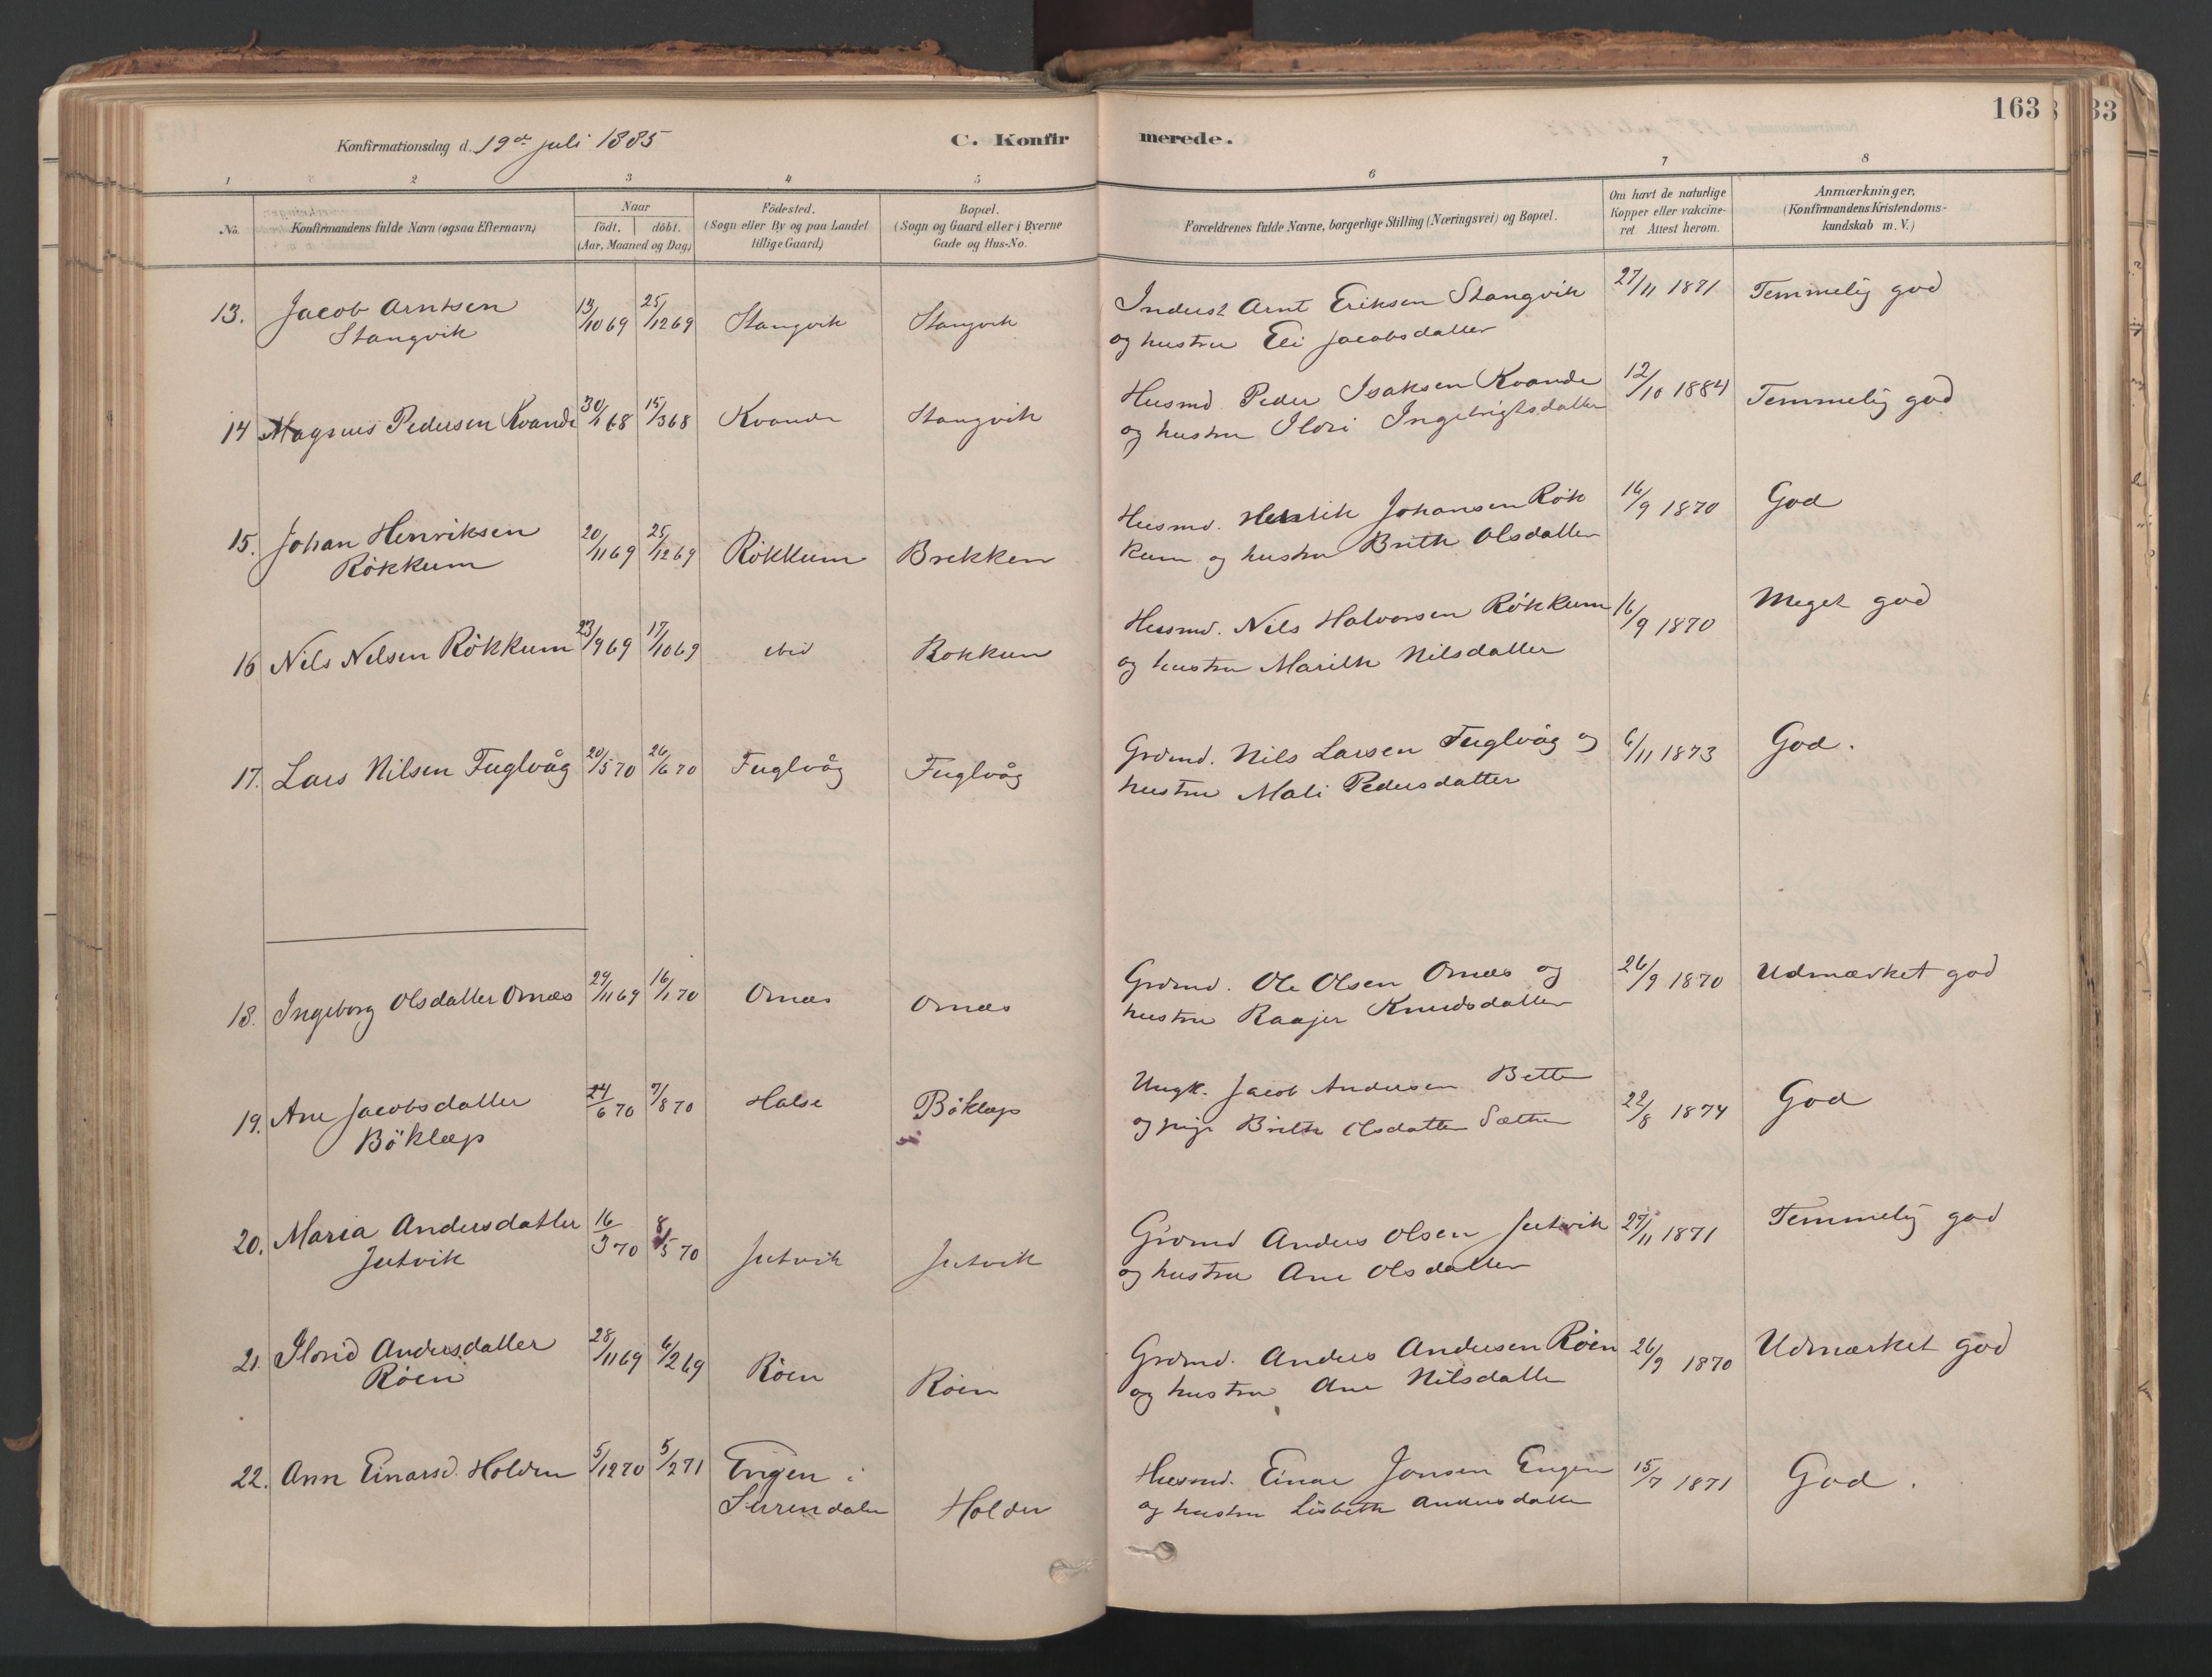 163
33
Konfirmationsdag d. 19de juli 1885
C. Konfirmerede.
1 2 3 4 5 6 7 8
No.
Konfirmandens fulde Navn (ogsaa Efternavn)
Naar
født. døbt.
(Aar, Maaned og Dag)
Födested.
(Sogn eller By og paa Landet
tillige Gaard)
Bopæl.
(Sogn og Gaard eller i Byerne
Gade og Hus-No.
Forældrenes fulde Navne, borgerlige Stilling (Næringsvei) og Bopæl.
Om havt de naturlige
Kopper eller vakcine-
ret. Attest herom.
Anmærkninger.
(Konfirmandens Kristendoms-
kundskab m. V.)
13. Jacob Arntsen
Stangvik
13/10 69 25/12 69 Stangvik Stangvik
Inderst Arnt Eriksen Stangvik
og hustru Eli Jacobsdatter
27/11 1871 Temmelig god
14 Magnus Pedersen Kvande 30/1 68 15/3 68 Kvande Stangvik
Husmd. Peder Isaksen Kvande
og hustru Ildri Ingebrigtsdatter
12/10 1884 Temmelig god
15. Johan Henriksen
Rökkum
20/11 69 25/12 69 Rökkum Brekken
Husmd. Henrik Johansen Rök
kum og hustru Brith Olsdatter
16/9 1870 God
16 Nils Nilsen Rökkum 23/9 69 17/10 69 ibid Rokkum
Husmd. Nils Halvorsen Rökkum
og hustru Marith Nilsdatter
16/9 1870 Meget god
17. Lars Nilsen Fuglvåg 20/5 70 26/6 70 Fuglvåg Fuglvåg
Grdmd. Nils Larsen Fuglvåg og
hustru Mali Pedersdatter
6/11 1873 God.
18. Ingeborg Olsdatter Ornæs 29/11 69 16/1 70 Ornæs Ornæs
Grdmd. Ole Olsen Ornæs og
hustru Raajer Knudsdatter
26/9 1870 Udmærket god
19. Ane Jacobsdatter
Böklæp
24/6 70 7/8 70 Halse Böklæp
Ungk. Jacob Andersen Bette
og pige Brith Olsdatter Sæther
22/8 1874 God
20. Maria Andersdatter
Jutvik
16/3 70 8/5 70 Jutvik Jutvik
Grdmd Anders Olsen Jutvik
og hustru Ane Olsdatter
27/11 1871 Temmelig god
21. Ildrid Andersdatter
Röen
28/11 69 6/2 69 Röen Röen
Grdmd. Anders Andersen Röen
og hustru Ane Nilsdatter
26/9 1870 Udmærket god
22. Ann Einarsd. Holden 5/12 70 5/2 71 Engen i
Surendalen Holden
Husmd. Einar Jonsen Engen
og hustru Lisbeth Andersdatter
15/7 1871 God.